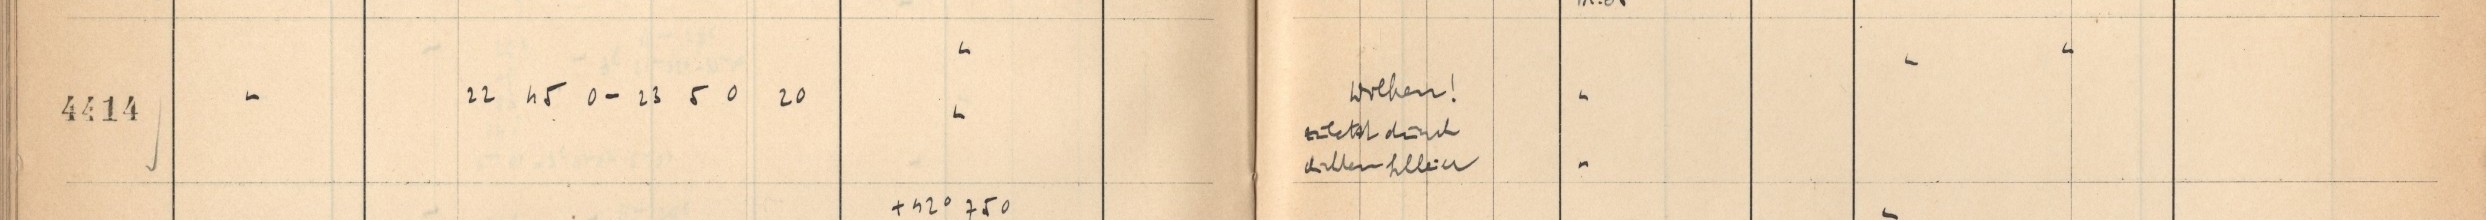 4414 " 22 45 0 - 23 5 0 20 " Wolken! "
"
zuletzt durch
dicken Schleier "
+42° 750